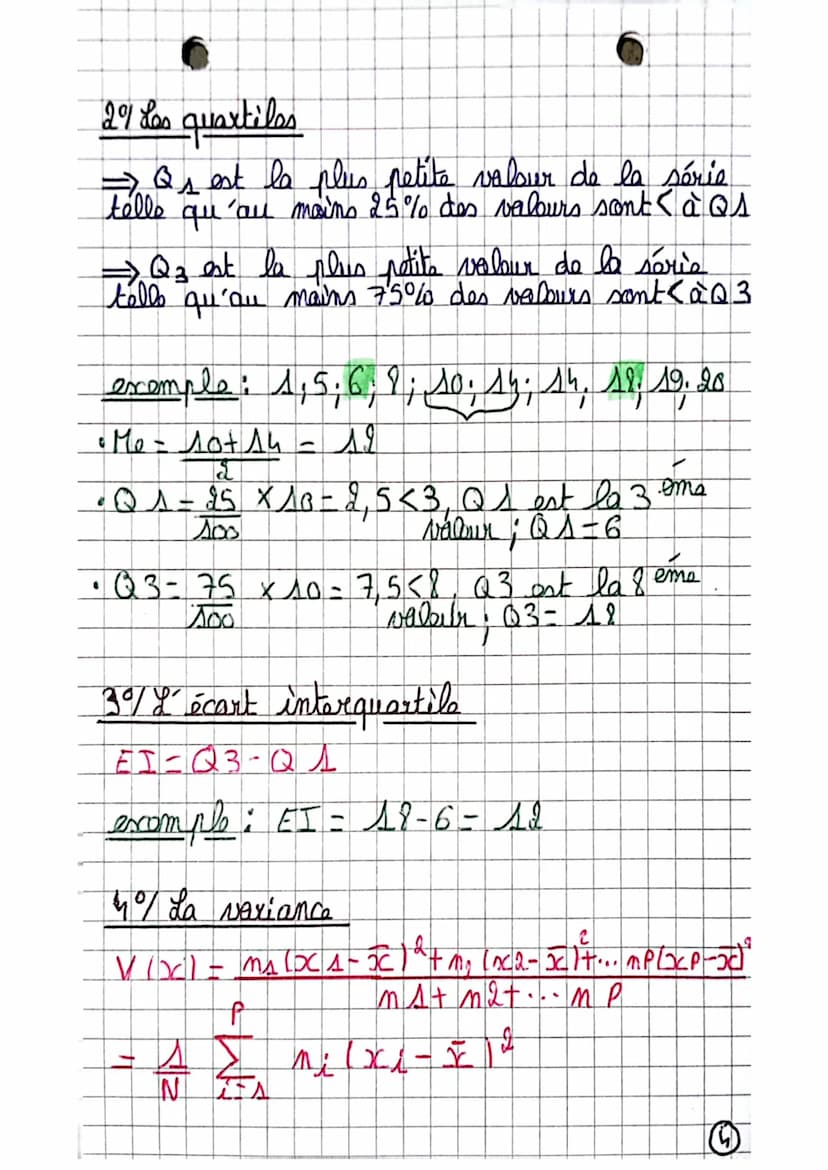 2°/ Les quartiles
⇒ Q1 est la plus petite valeur de la série
telle qu'au moins 25% des valeurs sont < à Q1
⇒ Q3 est la plus petite valeur de la série
telle qu'au moins 75% des valeurs sont < à Q3
exemple : 1; 5; 6; 8; 10; 14; 14; 18; 19; 20
• Me = (10+14)/2 = 12
• Q1 = 25/100 × 10 = 2,5 < 3, Q1 est la 3 ème
valeur ; Q1 = 6
• Q3 = 75/100 × 10 = 7,5 < 8, Q3 est la 8 ème
valeur ; Q3 = 18
3°/ L'écart interquartile
EI = Q3 - Q1
exemple : EI = 18 - 6 = 12
4°/ La variance
V(x) = n1(x1 - x̄)² + n,(x2 - x̄)² + ... np(xp - x̄)²
n1 + n2 + ... np
= 1/N ∑ p i=1 ni(xi - x̄)²
4